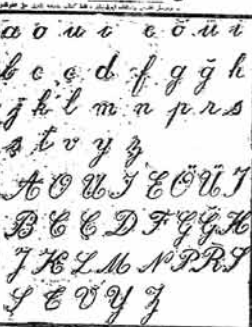 a o u ı e ö ü i
b c ç d f g ğ h
j k l m n p r s
ş t v y z
A O U I E Ö Ü İ
B C Ç D F G Ğ H
J K L M N P R S
Ş T V Y Z